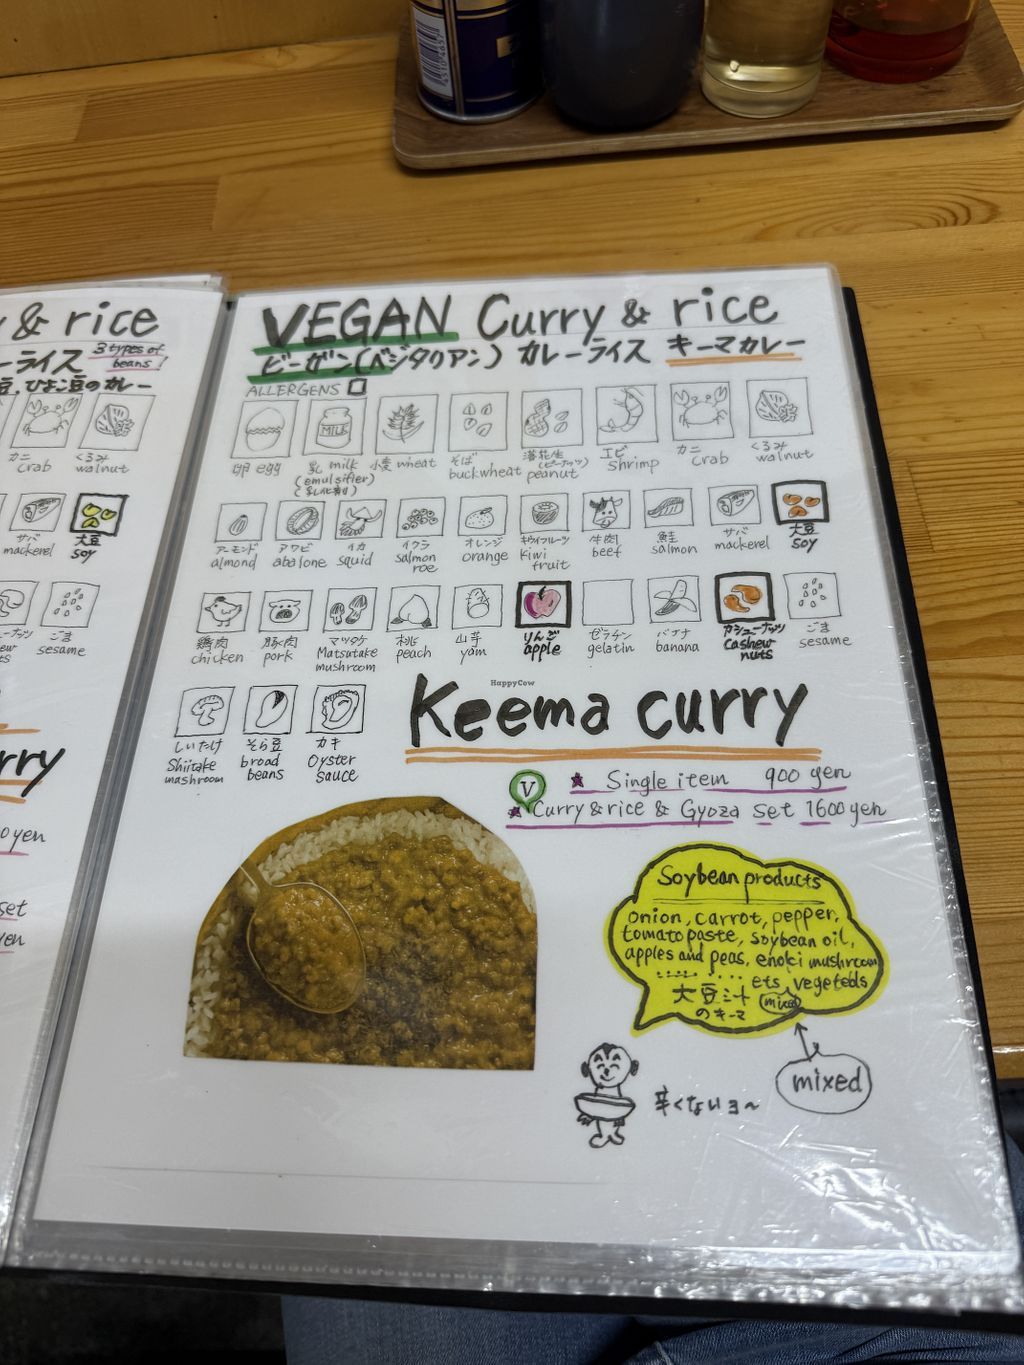 y & rice
ーライス 3 types of beans!
豆,ひよこ豆のカレー
カニ crab
くるみ walnut
サバ mackerel
大豆 soy
ごま sesame
rry
0 yen
set
yen
VEGAN Curry & rice
ビーガン(ベジタリアン) カレーライス キーマカレー
ALLERGENS
卵 egg
乳 milk (emulsifier) (乳化剤)
小麦 wheat
そば buckwheat
落花生 (ピーナッツ) peanut
エビ shrimp
カニ crab
くるみ walnut
アーモンド almond
アワビ abalone
イカ squid
イクラ salmon roe
オレンジ orange
キウイフルーツ Kiwi fruit
牛肉 beef
鮭 salmon
サバ mackerel
大豆 soy
鶏肉 chicken
豚肉 pork
マツタケ Matsutake mushroom
桃 peach
山芋 yam
りんご apple
ゼラチン gelatin
バナナ banana
カシューナッツ cashew nuts
ごま sesame
しいたけ Shiitake mushroom
そら豆 broad beans
カキ Oyster sauce
HappyCow
Keema curry
V
★ Single item 900 yen
★ Curry & rice & Gyoza set 1600 yen
Soybean products
onion, carrot, pepper,
tomato paste, soybean oil,
apples and peas, enoki mushroom
ets, vegeteds
大豆汁 mixed
のキーマ
mixed
辛くないヨ～